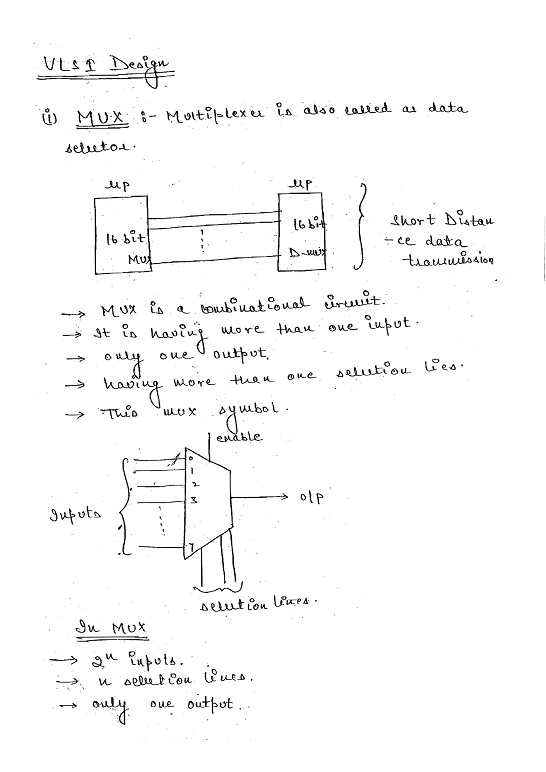 VLSI Design
(i) MUX :- Multiplexer is also called as data
selector.
µp
µp
16 bit
Mux
16 bit
D-mux
Short Distan
-ce data
transmission
→ MUX is a combinational circuit.
→ It is having more than one input.
→ only one output.
→ having more than one selection lies.
→ This mux symbol.
enable
0
1
2
3
7
Inputs
o/p
selection lines.
In MUX
→ 2ⁿ inputs.
→ n selection lines.
→ only one output.